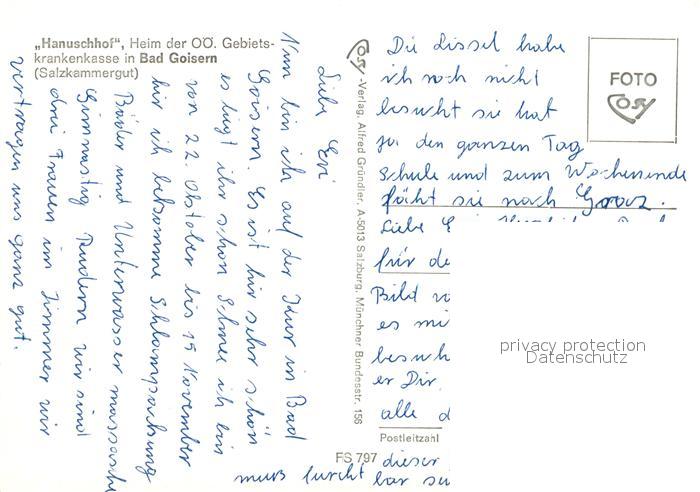 „Hanuschhof“, Heim der OÖ. Gebiets-
krankenkasse in Bad Goisern
(Salzkammergut)
Liebe Evi
Nun bin ich auf der Kur in Bad
Goisern. Es ist hir sehr schön
es liegt ihr schon Schnee ich bin
von 22. Oktober bis 19 November
hir ich bekomme Schlampackung
Bäder und Unterwasser massasche
Gimmastig Rudern wir sind
drei Frauen im Zimmer wir
vertragen uns ganz gut.
Cosy-Verlag, Alfred Gründler, A-5013 Salzburg, Münchner Bundesstr. 156
FOTO
COSY
Die lissel habe
ich noch nicht
besucht sie hat
ja den ganzen Tag
Schule und zum Wochenende
fäht sie nach Graz.
Liebe
für de
Bild
es mi
besuch
er Dir.
alle d
Postleitzahl
FS 797
dieser
muss furcht bar
privacy protection
Datenschutz